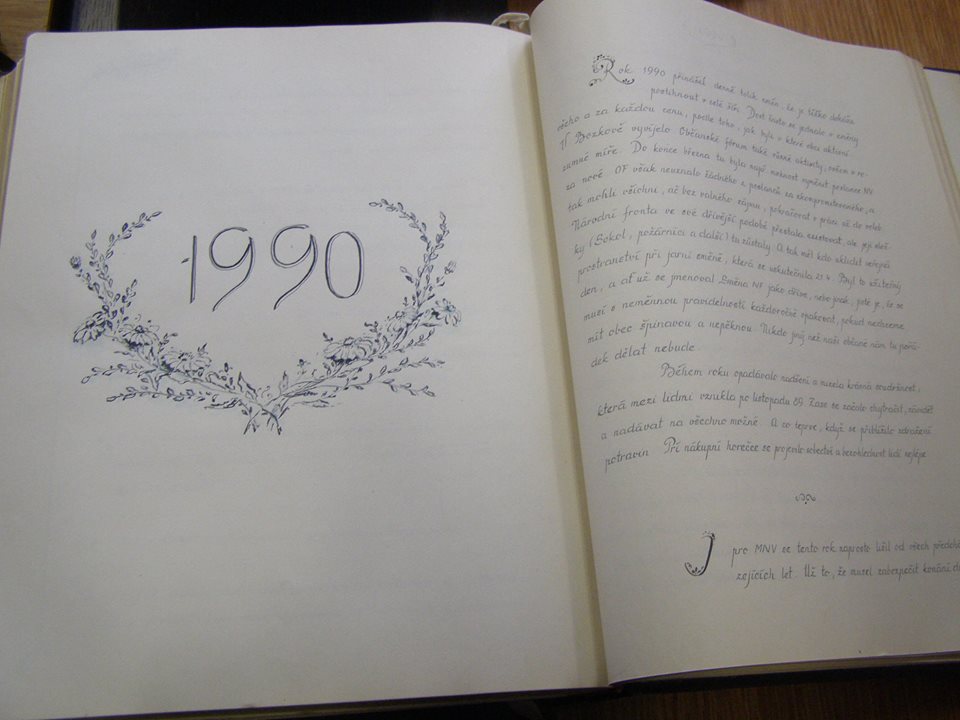 1990
Rok 1990 přinášel denně tolik změn, že je těžko dokážu
postihnout v celé šíři. Dost často se jednalo o změny
všeho a za každou cenu, podle toho, jak byli v které obci aktivní.
V Bozkově vyvíjelo Občanské fórum také různé aktivity, ovšem v ro-
zumné míře. Do konce března tu byla např. možnost vyměnit poslance NV
za nové. OF však neuznalo žádného z poslanců za zkompromitovaného, a
tak mohli všichni, ač bez valného zájmu, pokračovat v práci až do voleb.
Národní fronta ve své dřívější podobě přestala existovat, ale její slož-
ky (Sokol, požárníci a další) tu zůstaly. A tak měl kdo uklidit veřejná
prostranství při jarní směně, která se uskutečnila 21.4. Byl to užitečný
den, a ať už se jmenoval Směna NF jako dříve, nebo jinak, jisté je, že se
musí s neměnnou pravidelností každoročně opakovat, pokud nechceme
mít obec špinavou a nepěknou. Nikdo jiný než naši občané nám tu pořá-
dek dělat nebude.
Během roku opadávalo nadšení a mizela krásná soudržnost,
která mezi lidmi vznikla po listopadu 89. Zase se začalo chytračit, závidět
a nadávat na všechno možné. A co teprve, když se přiblížilo zdražení
potravin. Při nákupní horečce se projevilo sobectví a bezohlednost lidí nejlépe.
I pro MNV se tento rok naprosto lišil od všech předchá-
zejících let. Už to, že musel zabezpečit konání